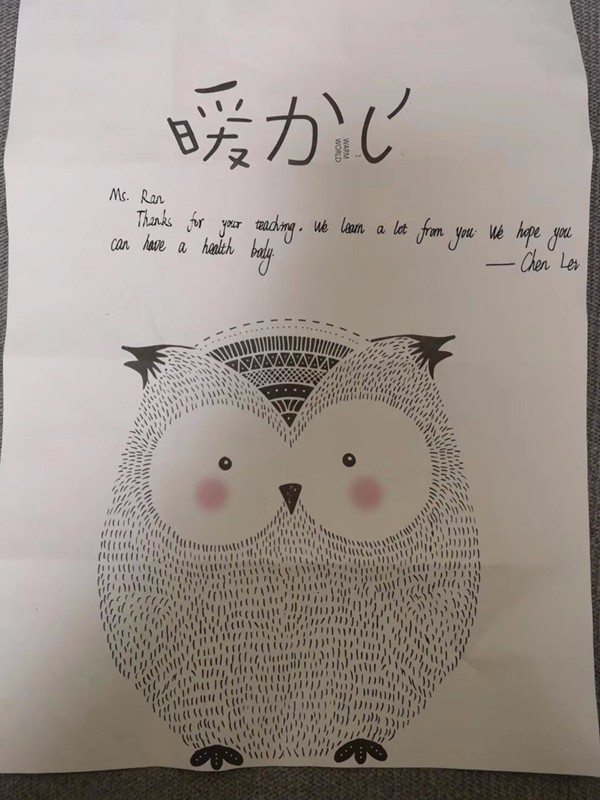 暖かい
WARM
WORLD
Ms. Ran
Thanks for your teaching. We learn a lot from you. We hope you
can have a health body.
—— Chen Lei